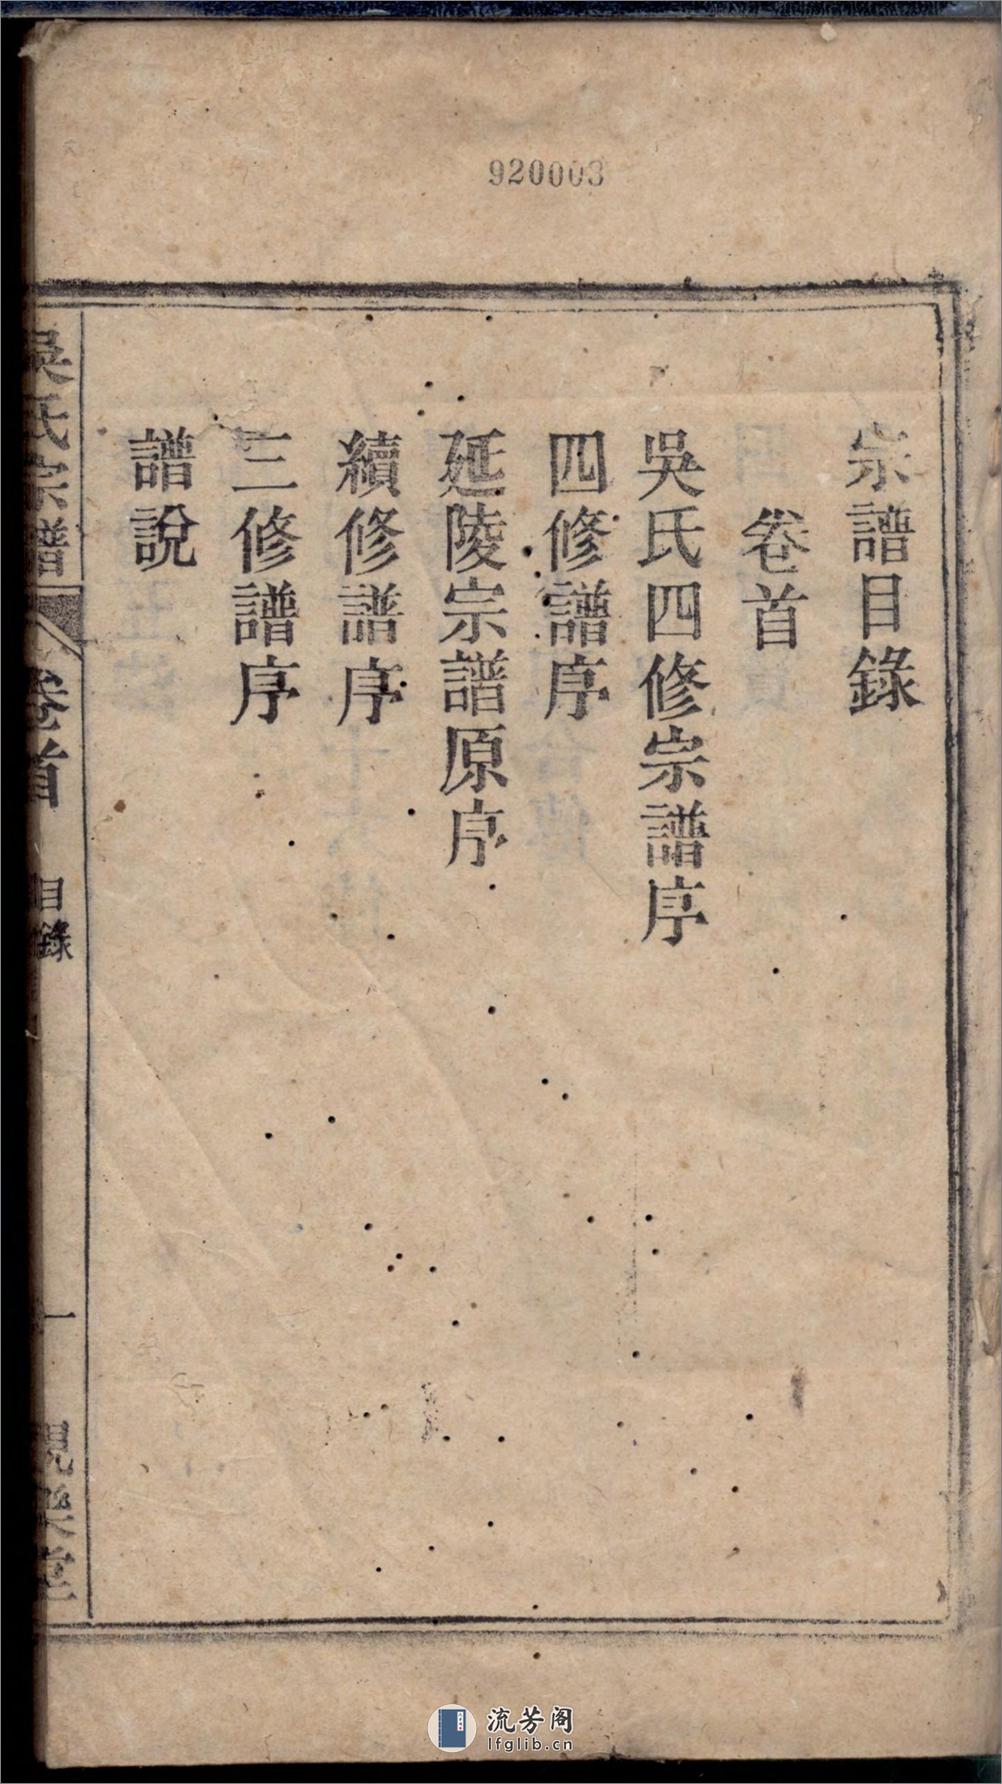 920003
宗譜目錄
卷首
吳氏四修宗譜序
四修譜序
延陵宗譜原序
續修譜序
三修譜序
譜說
吳氏宗譜
卷首
目錄
一
觀樂堂
流芳阁
lfglib.cn